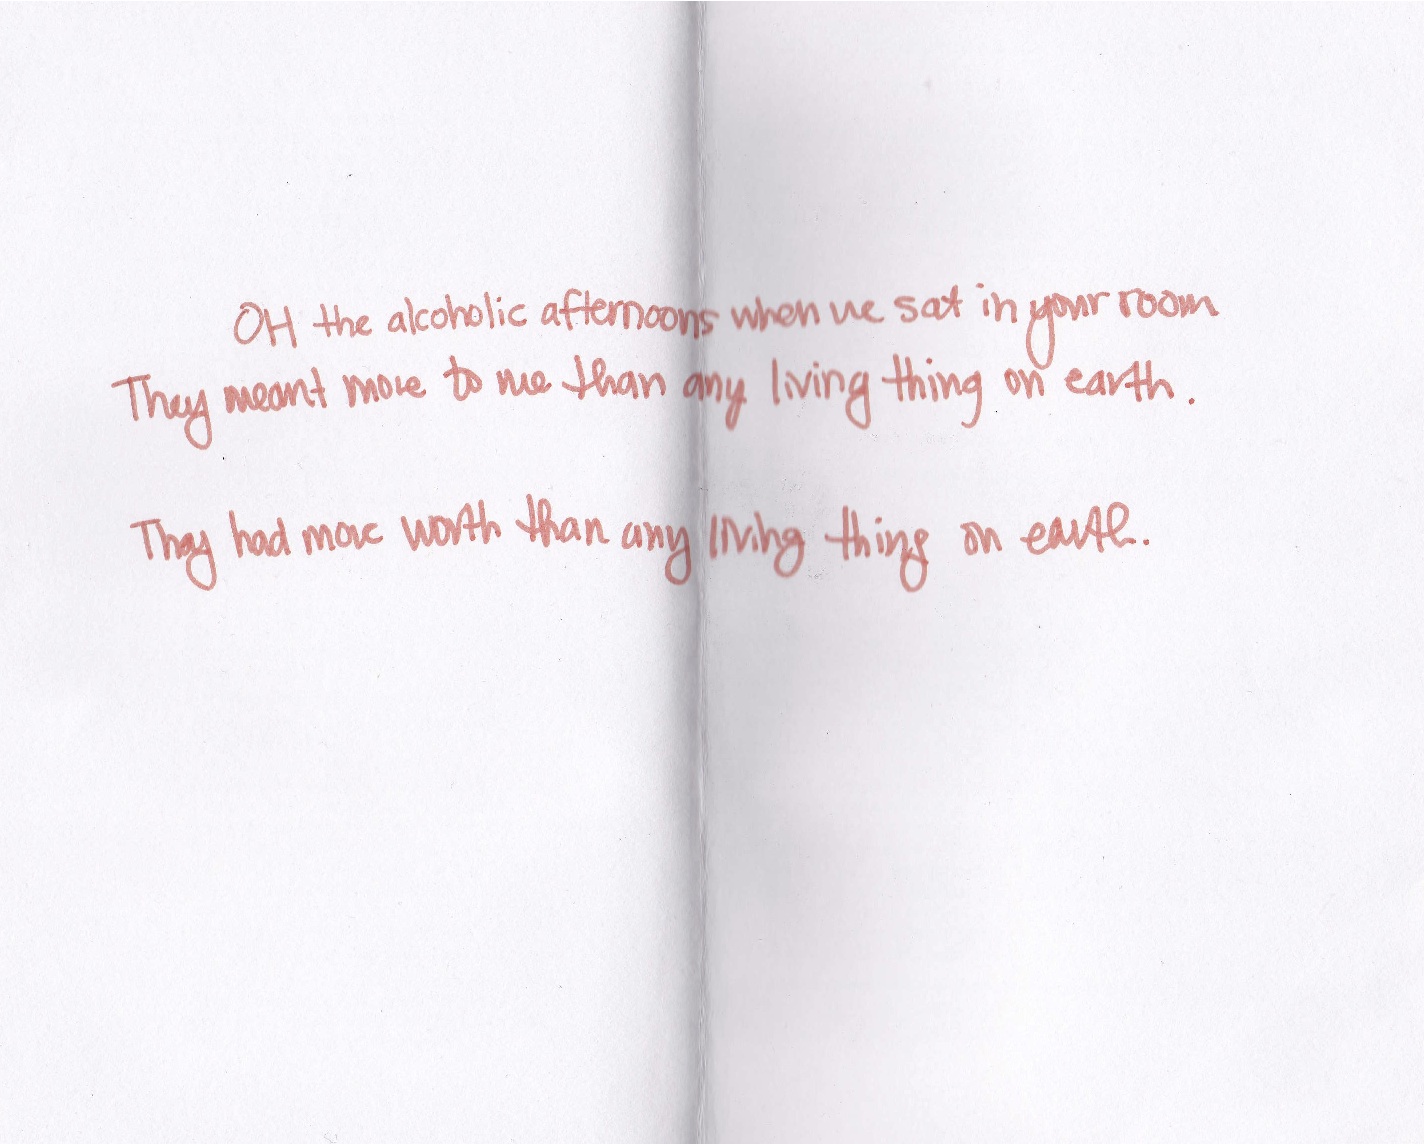 OH the alcoholic afternoons when we sat in your room
They meant more to me than any living thing on earth.
They had more worth than any living thing on earth.